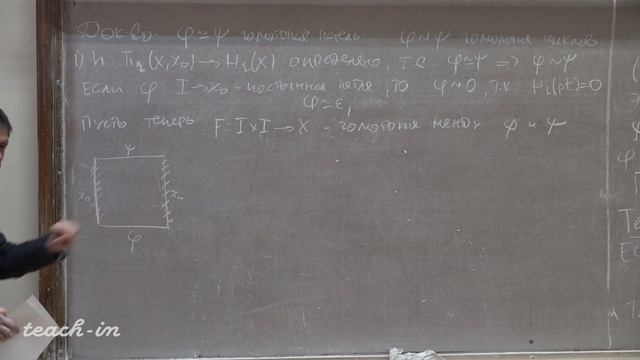 Док-во: φ ≃ ψ гомотопия петель φ ~ ψ гомология циклов
1) h: π₁(X, x₀) → H₁(X) определено, т.е. φ ≃ ψ ⇒ φ ~ ψ
Если φ: I → x₀ - постоянная петля, то φ ~ 0, т.к. H₁(pt) = 0
φ ≃ ε,
Пусть теперь F: I × I → X - гомотопия между φ и ψ
ψ
x₀ x₀
φ
teach-in